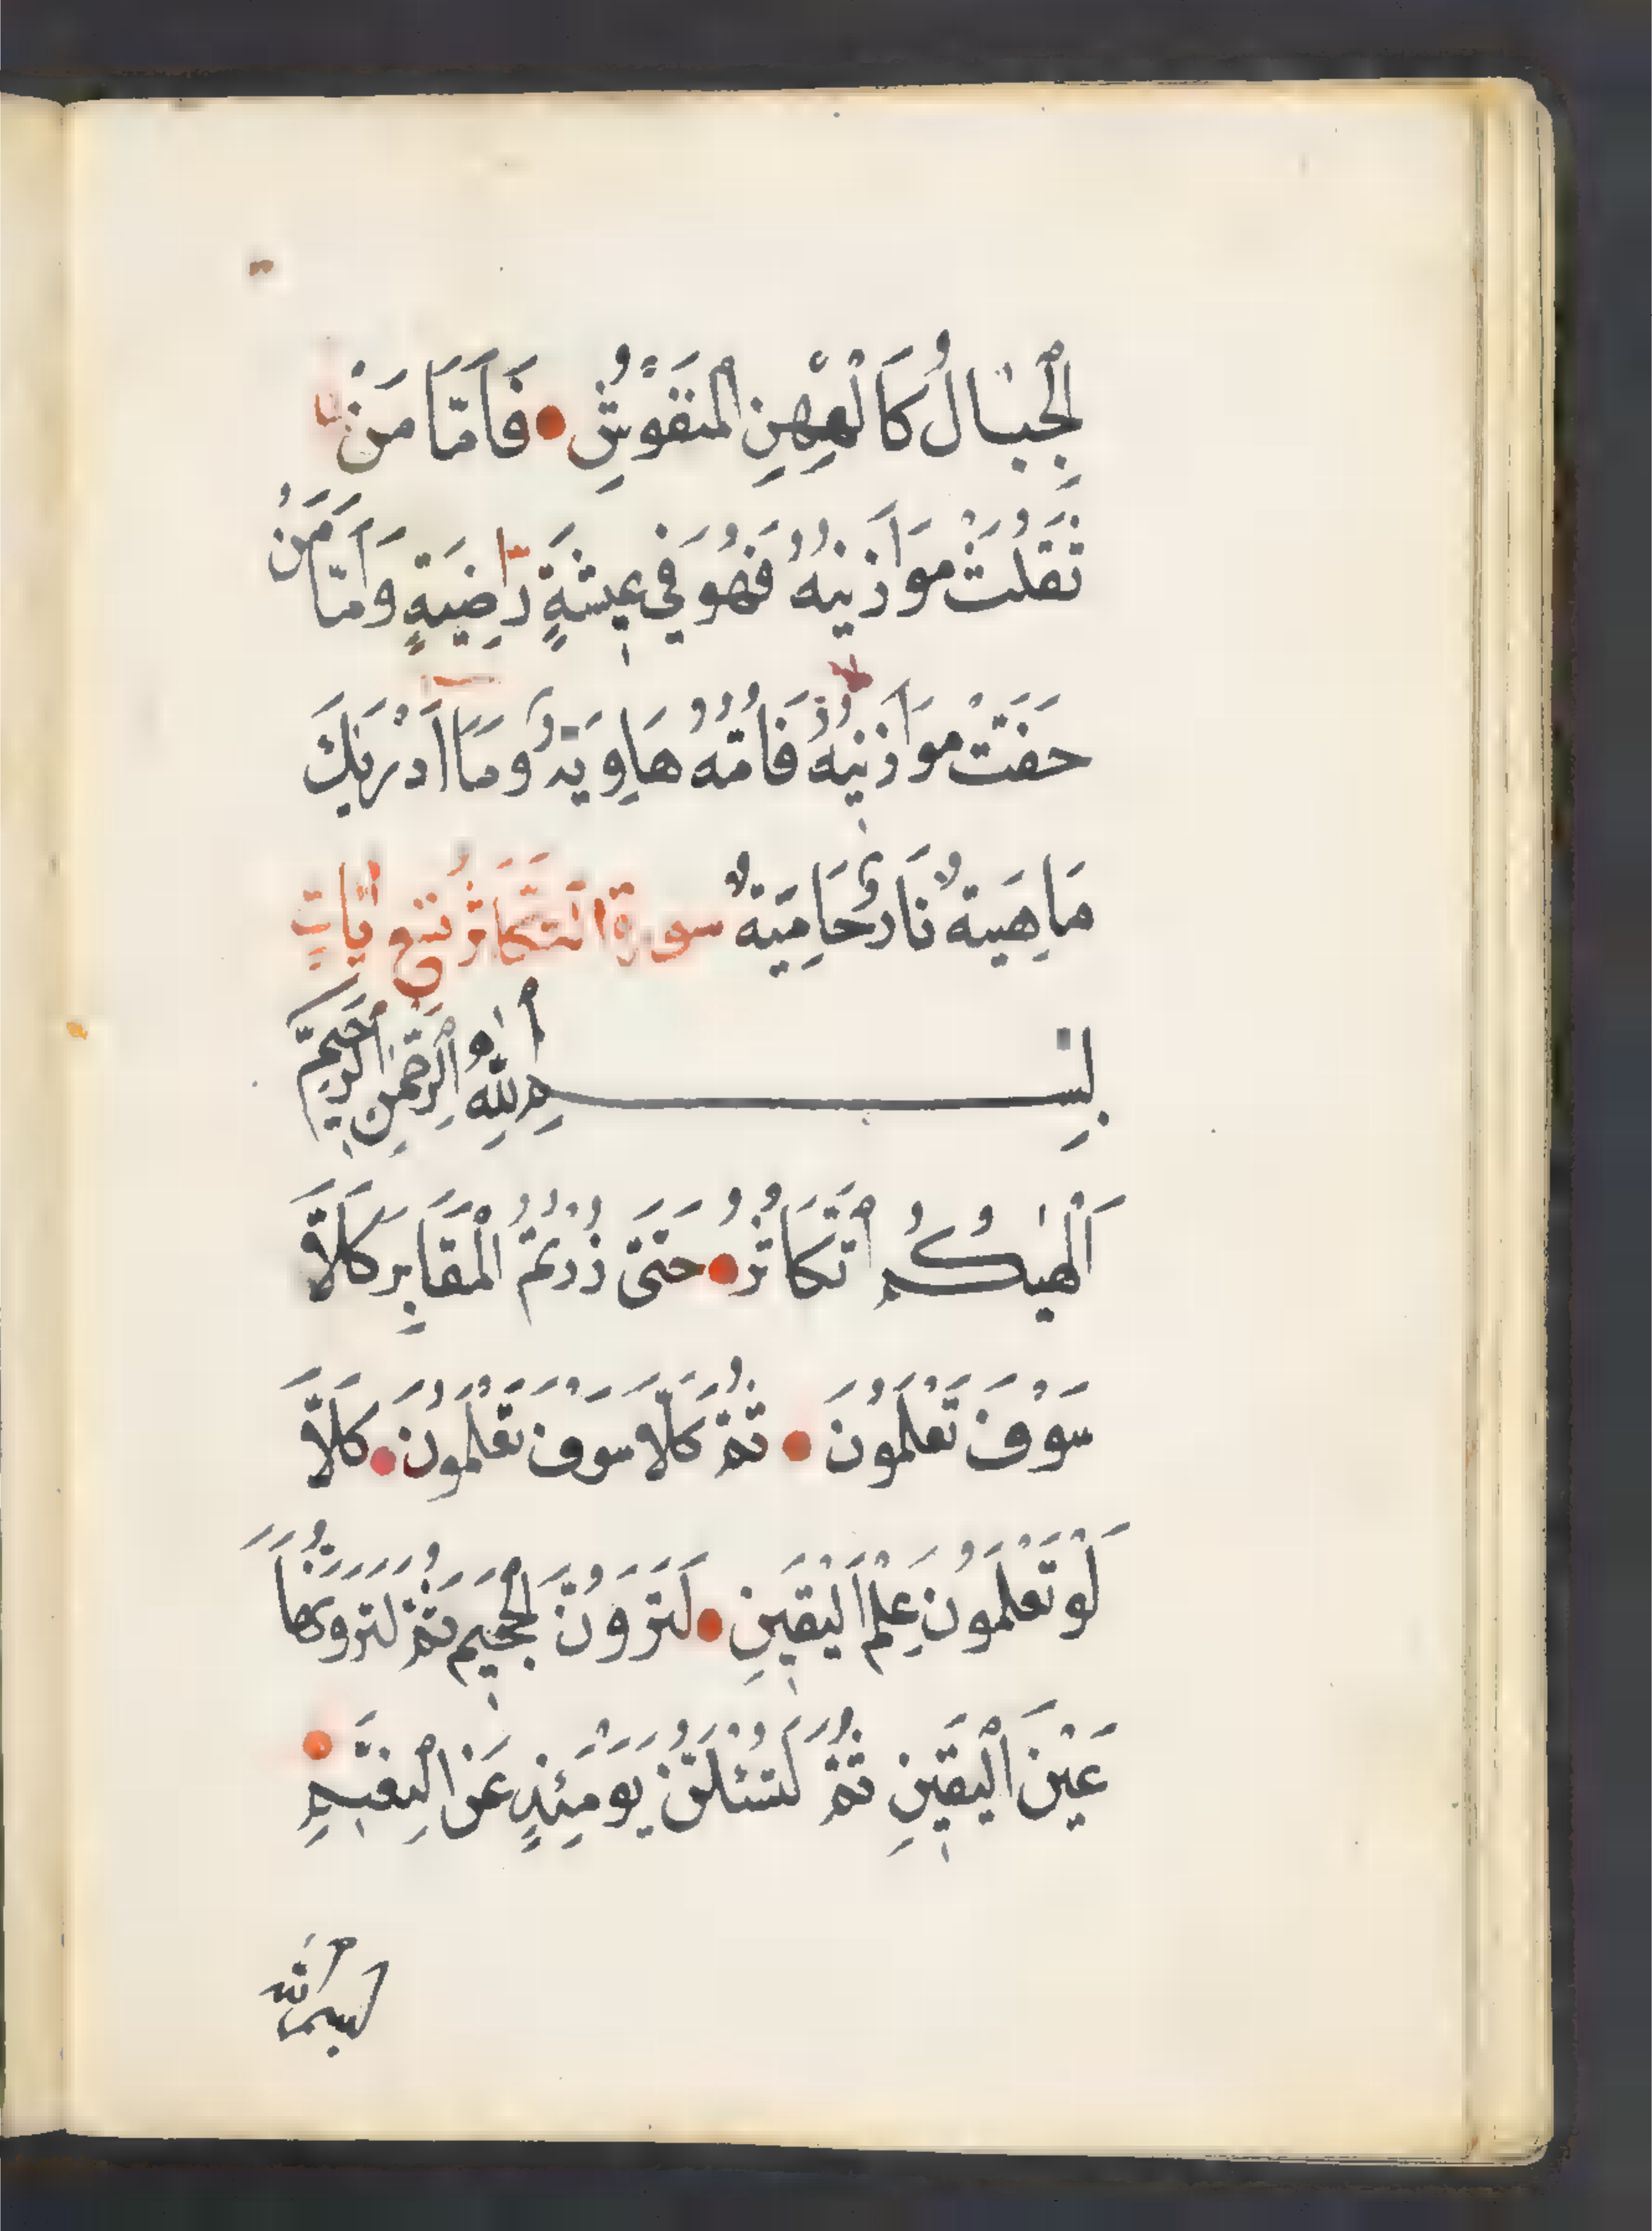 الْجِبَالُ كَالْعِهْنِ الْمَنْفُوشِ فَاَمَّا مَنْ
ثَقُلَتْ مَوَازِينُهُ فَهُوَ فِي عِيشَةٍ رَاضِيَةٍ وَاَمَّا مَنْ
خَفَّتْ مَوَازِينُهُ فَاُمُّهُ هَاوِيَةٌ وَمَا اَدْرٰيكَ
مَاهِيَهْ نَارٌ حَامِيَةٌ سورة التَّكَاثُر اٰيَاتٍ
بِسْمِ اللّٰهِ الرَّحْمٰنِ الرَّحِيمِ
اَلْهٰيكُمُ التَّكَاثُرُ حَتَّى زُرْتُمُ الْمَقَابِرَ كَلَّا
سَوْفَ تَعْلَمُونَ ثُمَّ كَلَّا سَوْفَ تَعْلَمُونَ كَلَّا
لَوْ تَعْلَمُونَ عِلْمَ الْيَقِينِ لَتَرَوُنَّ الْجَحِيمَ ثُمَّ لَتَرَوُنَّهَا
عَيْنَ الْيَقِينِ ثُمَّ لَتُسْئَلُنَّ يَوْمَئِذٍ عَنِ النَّعِيمِ
بسم الله